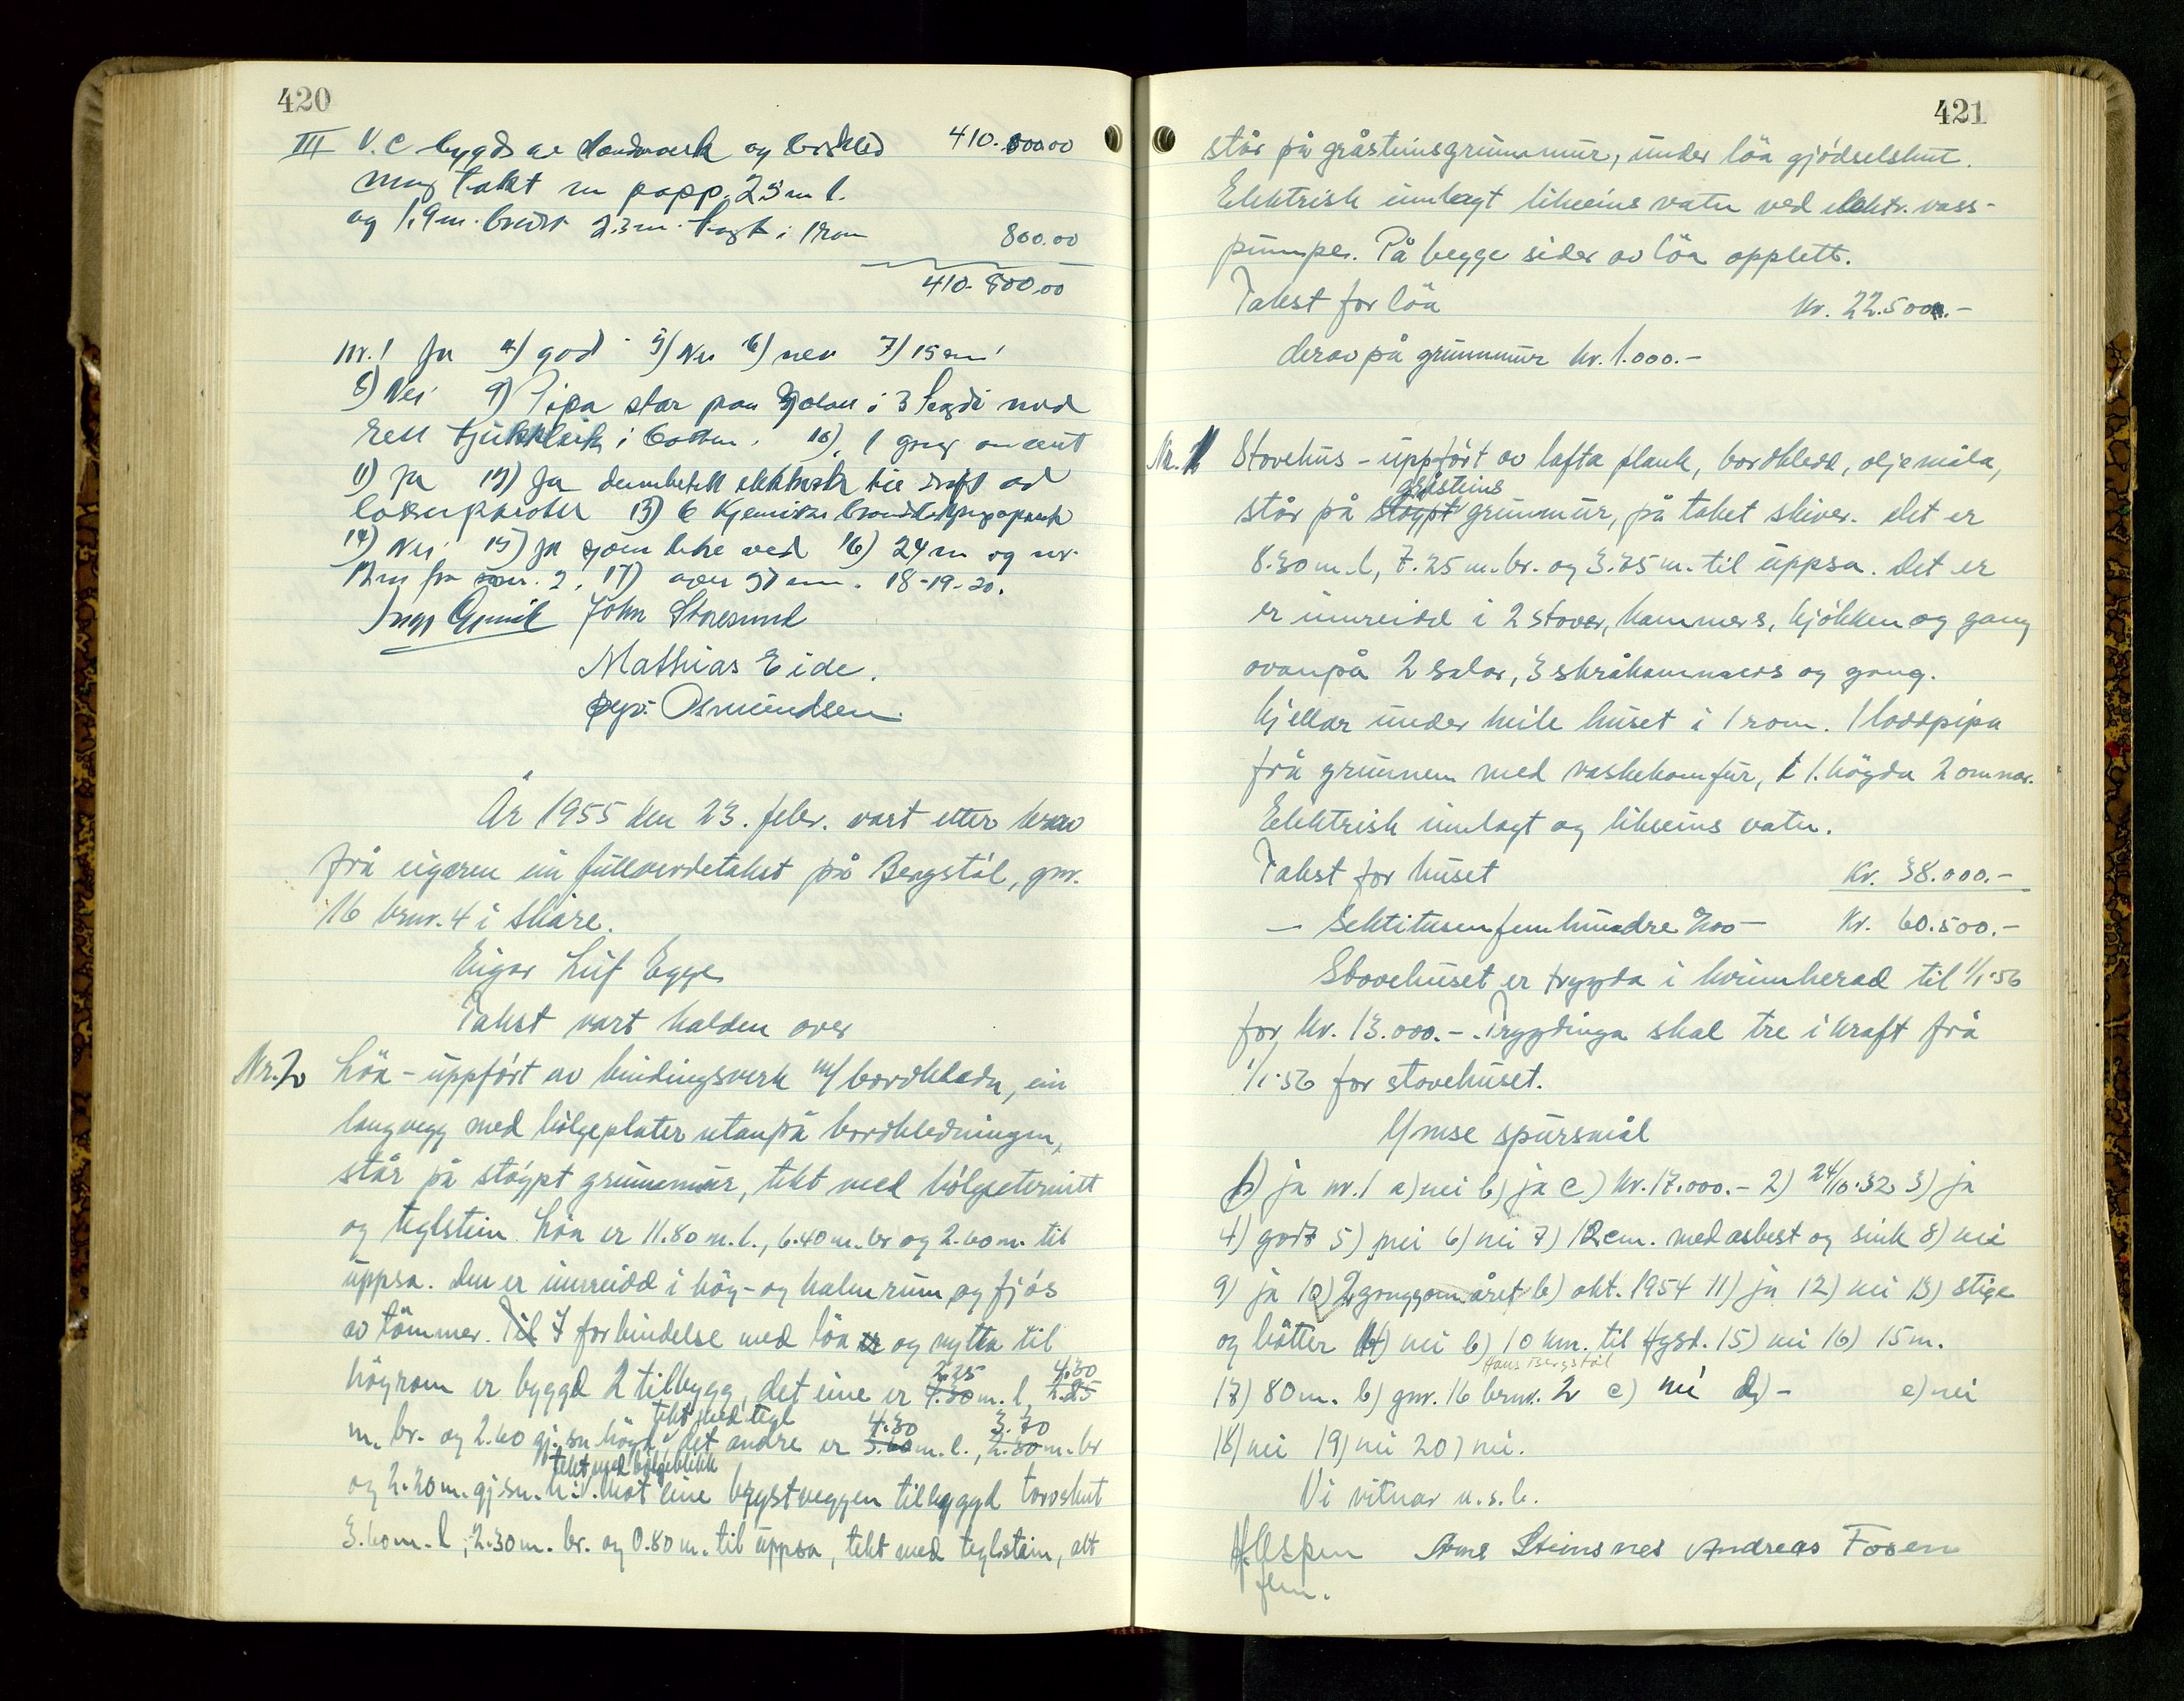 420
III V.C bygd av bandverk og bordkled 410.000.00
takt m papp. 2.5 m l.
og 1.9 m. breidt 2.3 m. høgt i 1 rom 800.00
410.800.00
Nr. 1 Ja 4) god 5) Nei 6) nei 7) 15 cm
8) Nei 9) Pipa star paa i 3 høgdi med
rett tjukkleik i botten. 10) 1 gong om aaret
11) Ja 12) Ja elektrisk
13) 6 kjemiske
14) Nei 15) Ja 16) 24 m og nr.
12 m fra nr. 2. 17) 18-19-20.
John Storesund
Mathias Eide.
Osmundsen.
År 1955 den 23. febr. vart etter krav
frå eigaren ein fullverdetakst på Bergstøl, gnr.
16 brnr. 4 i Skåre.
Eigar Leif Egge
Takst vart halden over
Nr. 2 Löa - uppført av bindingsverk m/ bordkledn, ein
langvegg med bölgeplater utanpå bordkledningen,
står på stöypt grunnmur, tekt med bölgeeternitt
og teglstein. Löa er 11.80 m. l., 6.40 m. br og 2.60 m. til
uppsa. Den er innreidd i høy- og halm rum og fjös
av tömmer. Til I forbindelse med löa er og nytta til
2.25 4.30
höyrom er byggd 2 tilbygg, det eine er 4.30 m. l, 2.25
tekt med tegl 4.30 3.70
m. br. og 2.60 gj.sn. högd. det andre er 3.60 m. l., 2.30 m. br
tekt med bölgeblikk
og 2.20 m. gj.sn. h. Mot eine brystveggen tilbyggd torvskut
3.60 m. l, 2.30 m. br. og 0.80 m. til uppsa, tekt med teglstein, alt
421
står på gråsteinsgrunnmur, under löa gjödselskut.
Elektrisk innlagt likeeins vatn ved elektr. vass-
pumpe. På begge sider av löa opplett.
Takst for löa kr. 22.500.-
derav på grunnmur kr. 1.000.-
Nr. 1 Stovehus - uppfört av lafta plank, bordkledd, oljemåla,
gråsteins
står på stöypt grunnmur, på taket skiver. Det er
8.30 m. l, 7.25 m. br. og 3.25 m. til uppsa. Det er
er innreidd i 2 stover, kammers, kjökken og gang
ovanpå 2 salar, 3 skråkammers og gang.
Kjellar under heile huset i 1 rom. 1 loddpipa
frå grunnen med vaskekomfur, i 1. högda 2 omnar.
Elektrisk innlagt og likeeins vatn.
Takst for huset kr. 38.000.-
- Sektitusenfemhundre kro - Kr. 60.500.-
Stovehuset er trygda i Kvinnherad til 1/1-56
for kr. 13.000.-. Trygdinga skal tre i kraft frå
1/1-56 for stovehuset.
Ymse spursmål
1) ja nr. 1 a) nei b) ja c) kr. 17.000.- 2) 24/10-32 3) ja
4) godt 5) nei 6) nei 7) 12 cm. med asbest og sink 8) nei
9) ja 10) 2 gongg om året b) okt. 1954 11) ja 12) nei 13) stige
og bötter 14) nei b) 10 km. til Hgsd. 15) nei 16) 15 m.
Hans Bergstöl
17) 80 m. b) gnr. 16 brnr. 2 c) nei d) - e) nei
18) nei 19) nei 20) nei.
Vi vitnar u.s.b.
H. Espen Arne Steinsnes Andreas Fosen
fem.